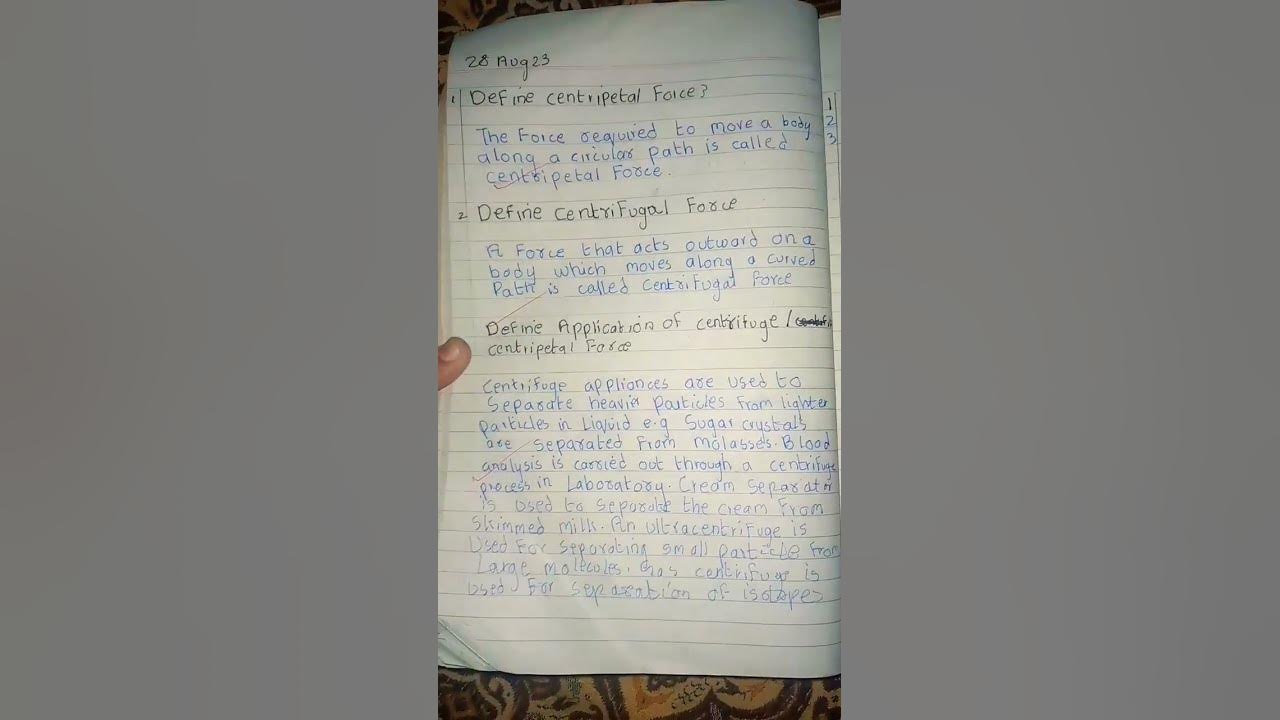 28 Aug 23
1 Define centripetal Force?
The Force required to move a body
along a circular path is called
centripetal Force.
2 Define centrifugal Force
A Force that acts outward on a
body which moves along a curved
Path is called centrifugal force
Define Application of centrifuge /
centripetal Force
Centrifuge appliances are used to
Separate heavier Particles from lighter
particles in Liquid e.g Sugar crystals
are separated from molasses. Blood
analysis is carried out through a centrifuge
process in Laboratory. Cream Separator
is used to separate the cream from
Skimmed milk. An ultracentrifuge is
Used for separating small particle from
Large molecules. Gas centrifuge is
Used for separation of isotopes
1
2
3